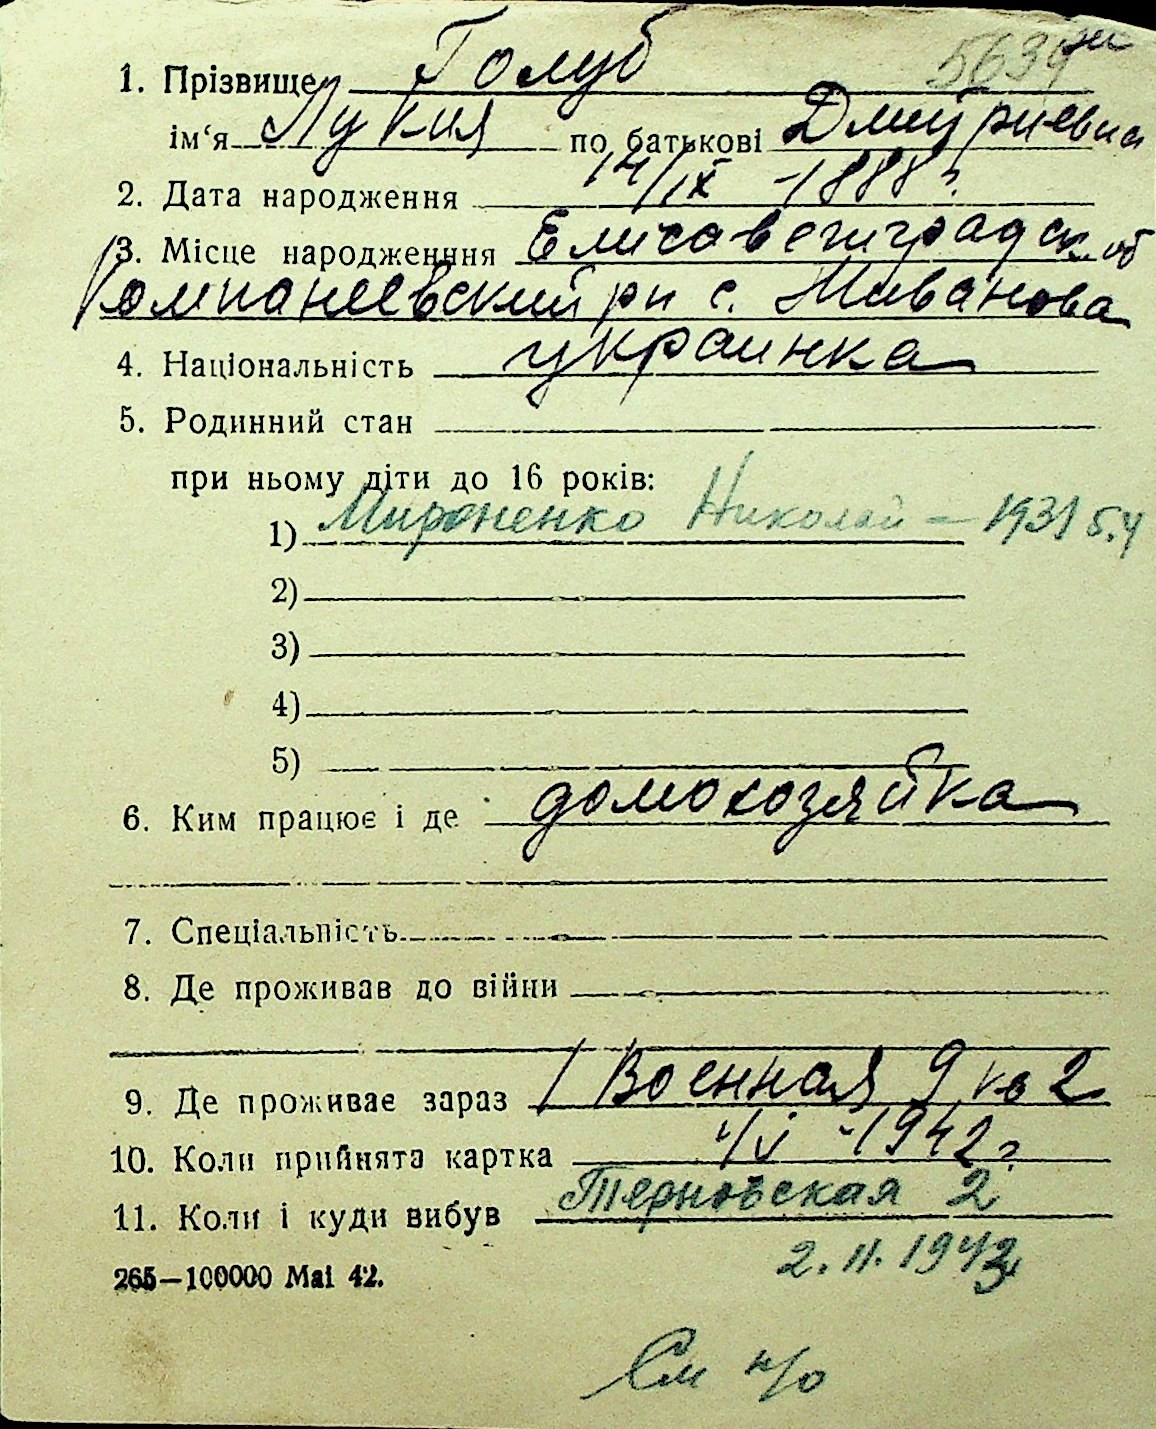 5639
1. Прізвище Голуб
ім‘я Лукия по батькові Дмитриевна
2. Дата народження 14/IX - 1888 г.
3. Місце народженння Елисаветградск. об
Компанеевский рн с. Живанова
4. Національність украинка
5. Родинний стан
при ньому діти до 16 років:
1) Мироненко Николай – 1931
2)
3)
4)
5)
6. Ким працює і де домохозяйка
7. Спеціальність
8. Де проживав до війни
9. Де проживає зараз Военная 9 кв 2
10. Коли прийнята картка 4/V - 1942 г.
11. Коли і куди вибув Терновская 2
2. II. 1943
265—100000 Mai 42.
См н/о